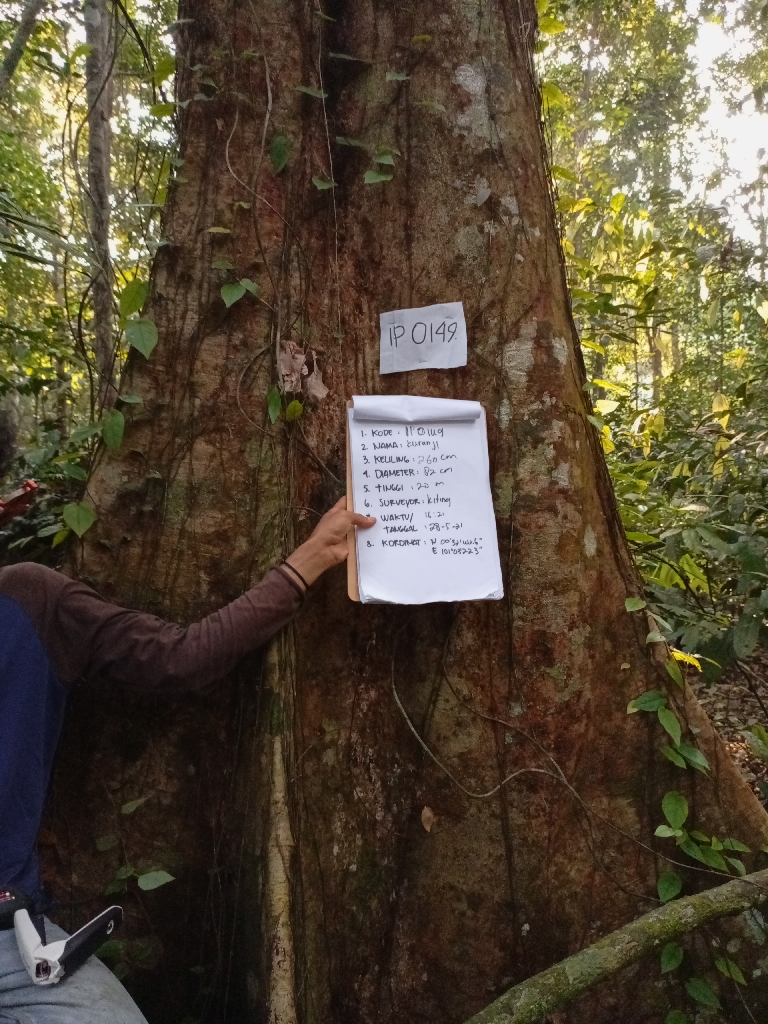 IP 0149.
1. KODE : IP 0149
2. NAMA : kuranji
3. KELILING : 260 cm
4. DIAMETER : 82 cm
5. TINGGI : 20 m
6. SURVEYOR : kiting
WAKTU/ 16:21
TANGGAL : 28-5-21
8. KORDINAT : N 00°52'
E 101°08223"